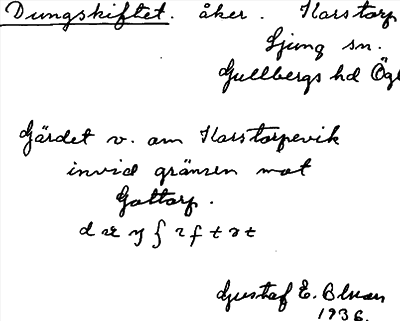 Dungskiftet. åker. Korstorp
Ljung sn.
Gullbergs hd Ög
Gärdet v. om Korstorpevik
invid gränsen mot
Gottorp.
Gustaf E.
1936.